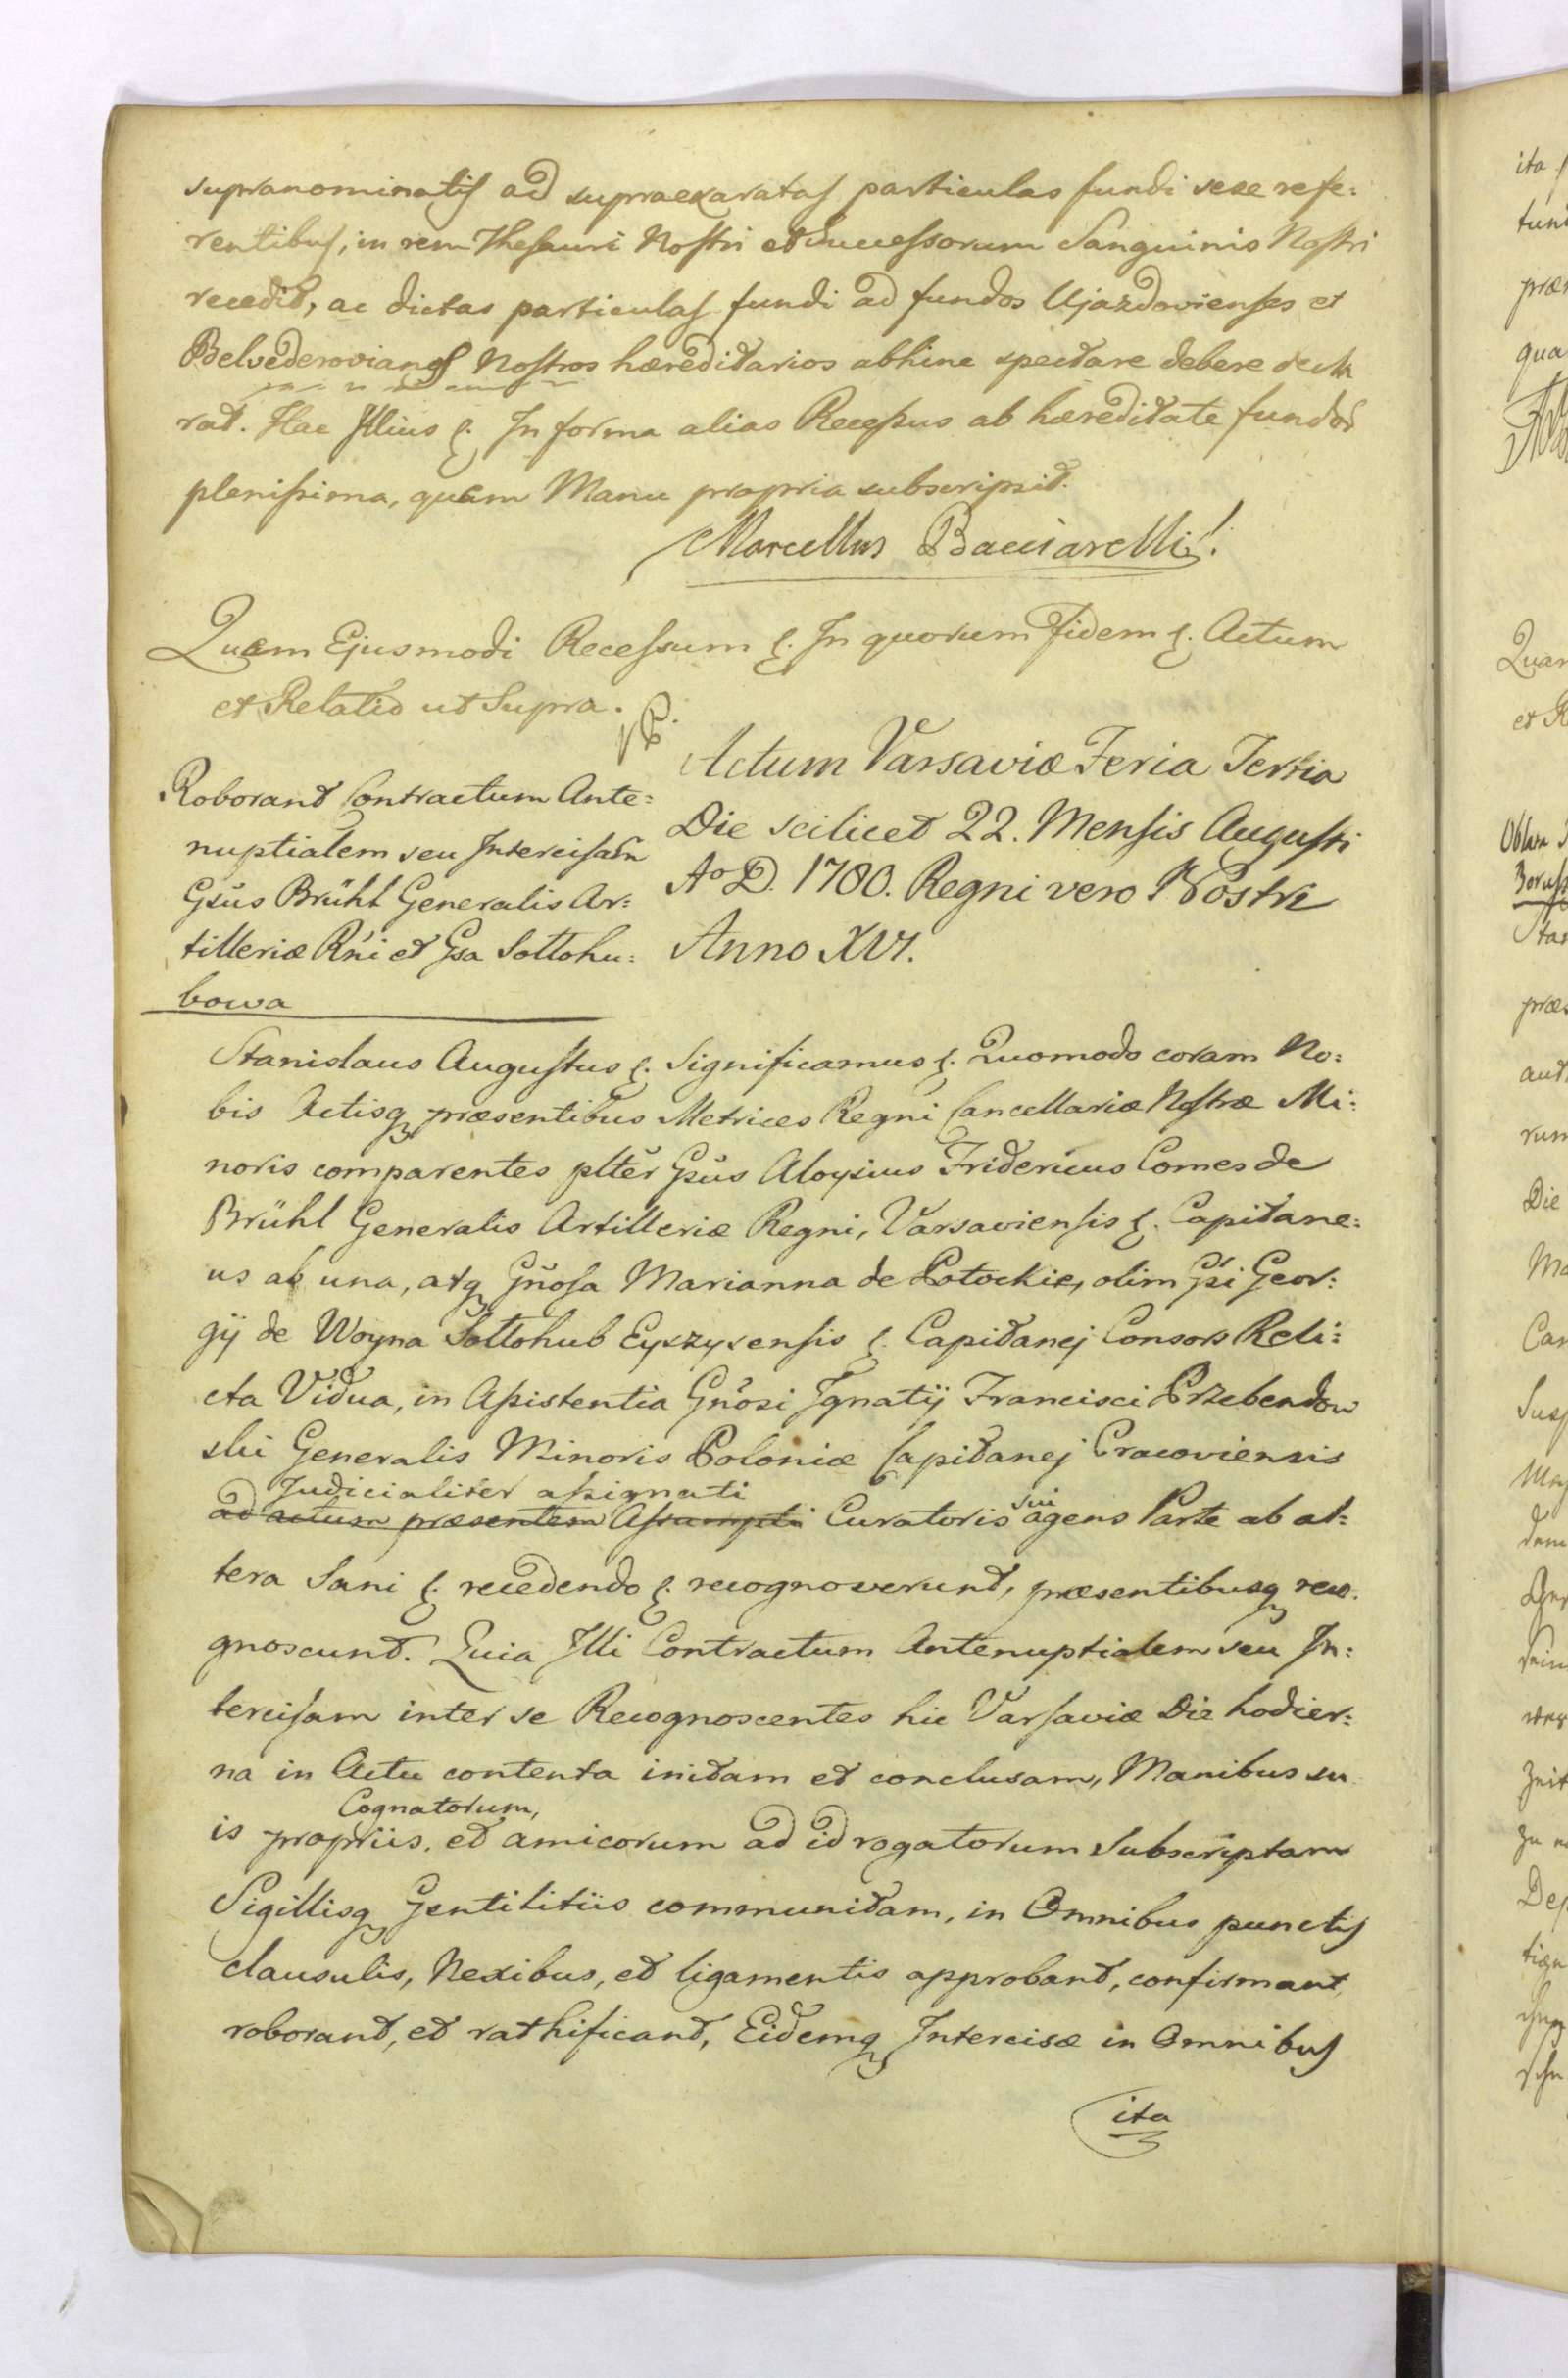 supranominatis ad supraexaratas particulas fundi sese refe:
rentibus, in rem Thesauri Nostri et Successorum Sanguinis Nostri
recedit, ac dictas particulas fundi ad fundos Ujazdovienses et
Belvederovianos Nostros hæreditarios abhinc spectare debere decla
rat. Hac Illius &. In forma alias Recessus ab hæreditate fundor
plenissima, quam Manu propria subscripsit.
Marcellus Bacciarelli
Quem Ejusmodi Recessum &. In quorum Fidem &. Actum
et Relatio ut Supra.
Roborant Contractum Ante:
nuptialem seu Intercisam
Gsus Brühl Generalis Ar:
tilleriæ Rni et Gsa Sottohu:
bowa
Actum Varsaviæ Feria Tertia
Die scilicet 22. Mensis Augusti
Ao D. 1780. Regni vero Nostri
Anno XVI.
Stanislaus Augustus &. Significamus &. Quomodo coram No:
bis Actisq præsentibus Metrices Regni Cancellariæ Nostræ Mi:
noris comparentes plter Gsus Aloysius Fridericus Comes de
Brühl Generalis Artilleriæ Regni, Varsaviensis &. Capitane:
us ab una, atq Gnosa Marianna de Potockie, olim Gsi Geor:
gij de Woyna Sottohub Eyszyscensis &. Capitanej Consors Reli:
cta Vidua, in Assistentia Gnosi Ignatij Francisci Przebendow
ski Generalis Minoris Poloniæ Capitanej Cracoviensis
Judicialiter assignati
ad actum præsentem Assumpti Curatoris sui agens Parte ab al:
tera Sani &. recedendo &. recognoverunt, præsentibusq reco.
gnoscunt. Quia Illi Contractum Antenuptialem seu In:
tercisam inter se Recognoscentes hic Varsaviæ Die hodier:
na in Actu contenta initam et conclusam, Manibus su
Cognatorum,
is propriis. et amicorum ad id rogatorum Subscriptam
Sigillisq Gentilitiis communitam, in Omnibus punctis
clausulis, Nexibus, et ligamentis approbant, confirmant,
roborant, et rathificant, Eidemq Intercisæ in Omnibus
ita